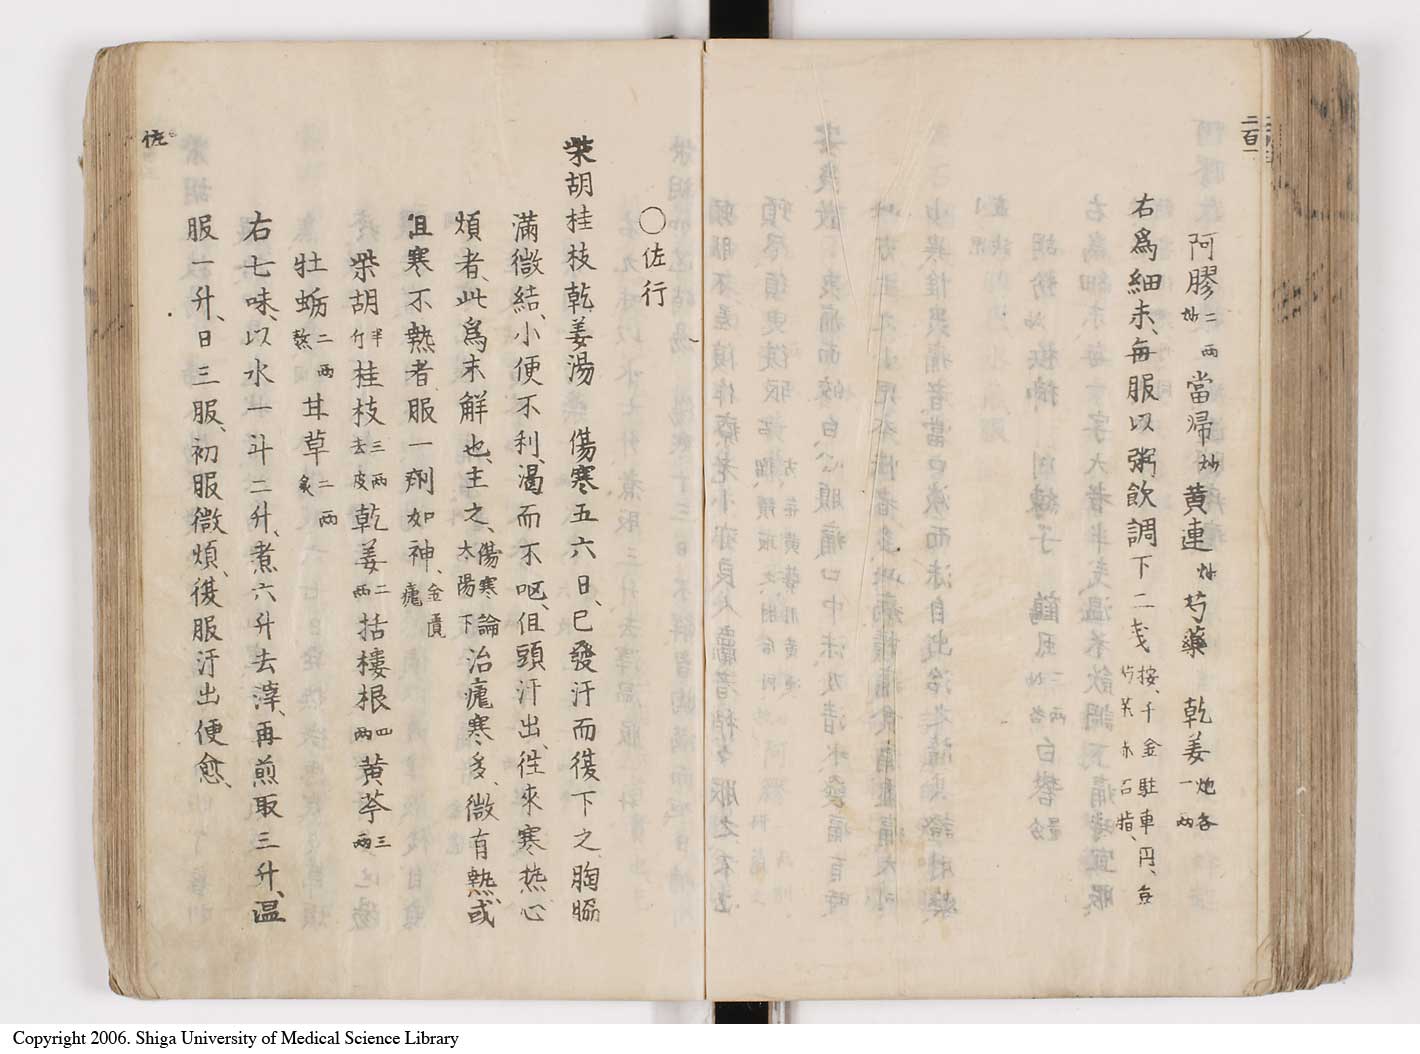 二百一
阿膠炒二両當帰炒黄連炒芍藥 乾姜炮各一両
右爲細末、毎服以粥飲調下二戔按、千金駐車円、無芍
○佐行
柴胡桂枝乾姜湯 傷寒五六日、已發汗而復下之、胸脇
滿微結、小便不利、渴而不呕、但頭汗出、往來寒热心
煩者、此爲未解也、主之、傷寒論太陽下治瘧寒多、微有熱、或
但寒不熱者、服一劑如神、金匱瘧
柴胡半斤桂枝三両去皮乾姜二両括樓根四両黄芩三両
牡蛎二両熬甘草二両炙
右七味、以水一斗二升、煮六升去滓、再煎取三升、温
服一升、日三服、初服微煩、復服汗出便愈、
佐
Copyright 2006. Shiga University of Medical Science Library